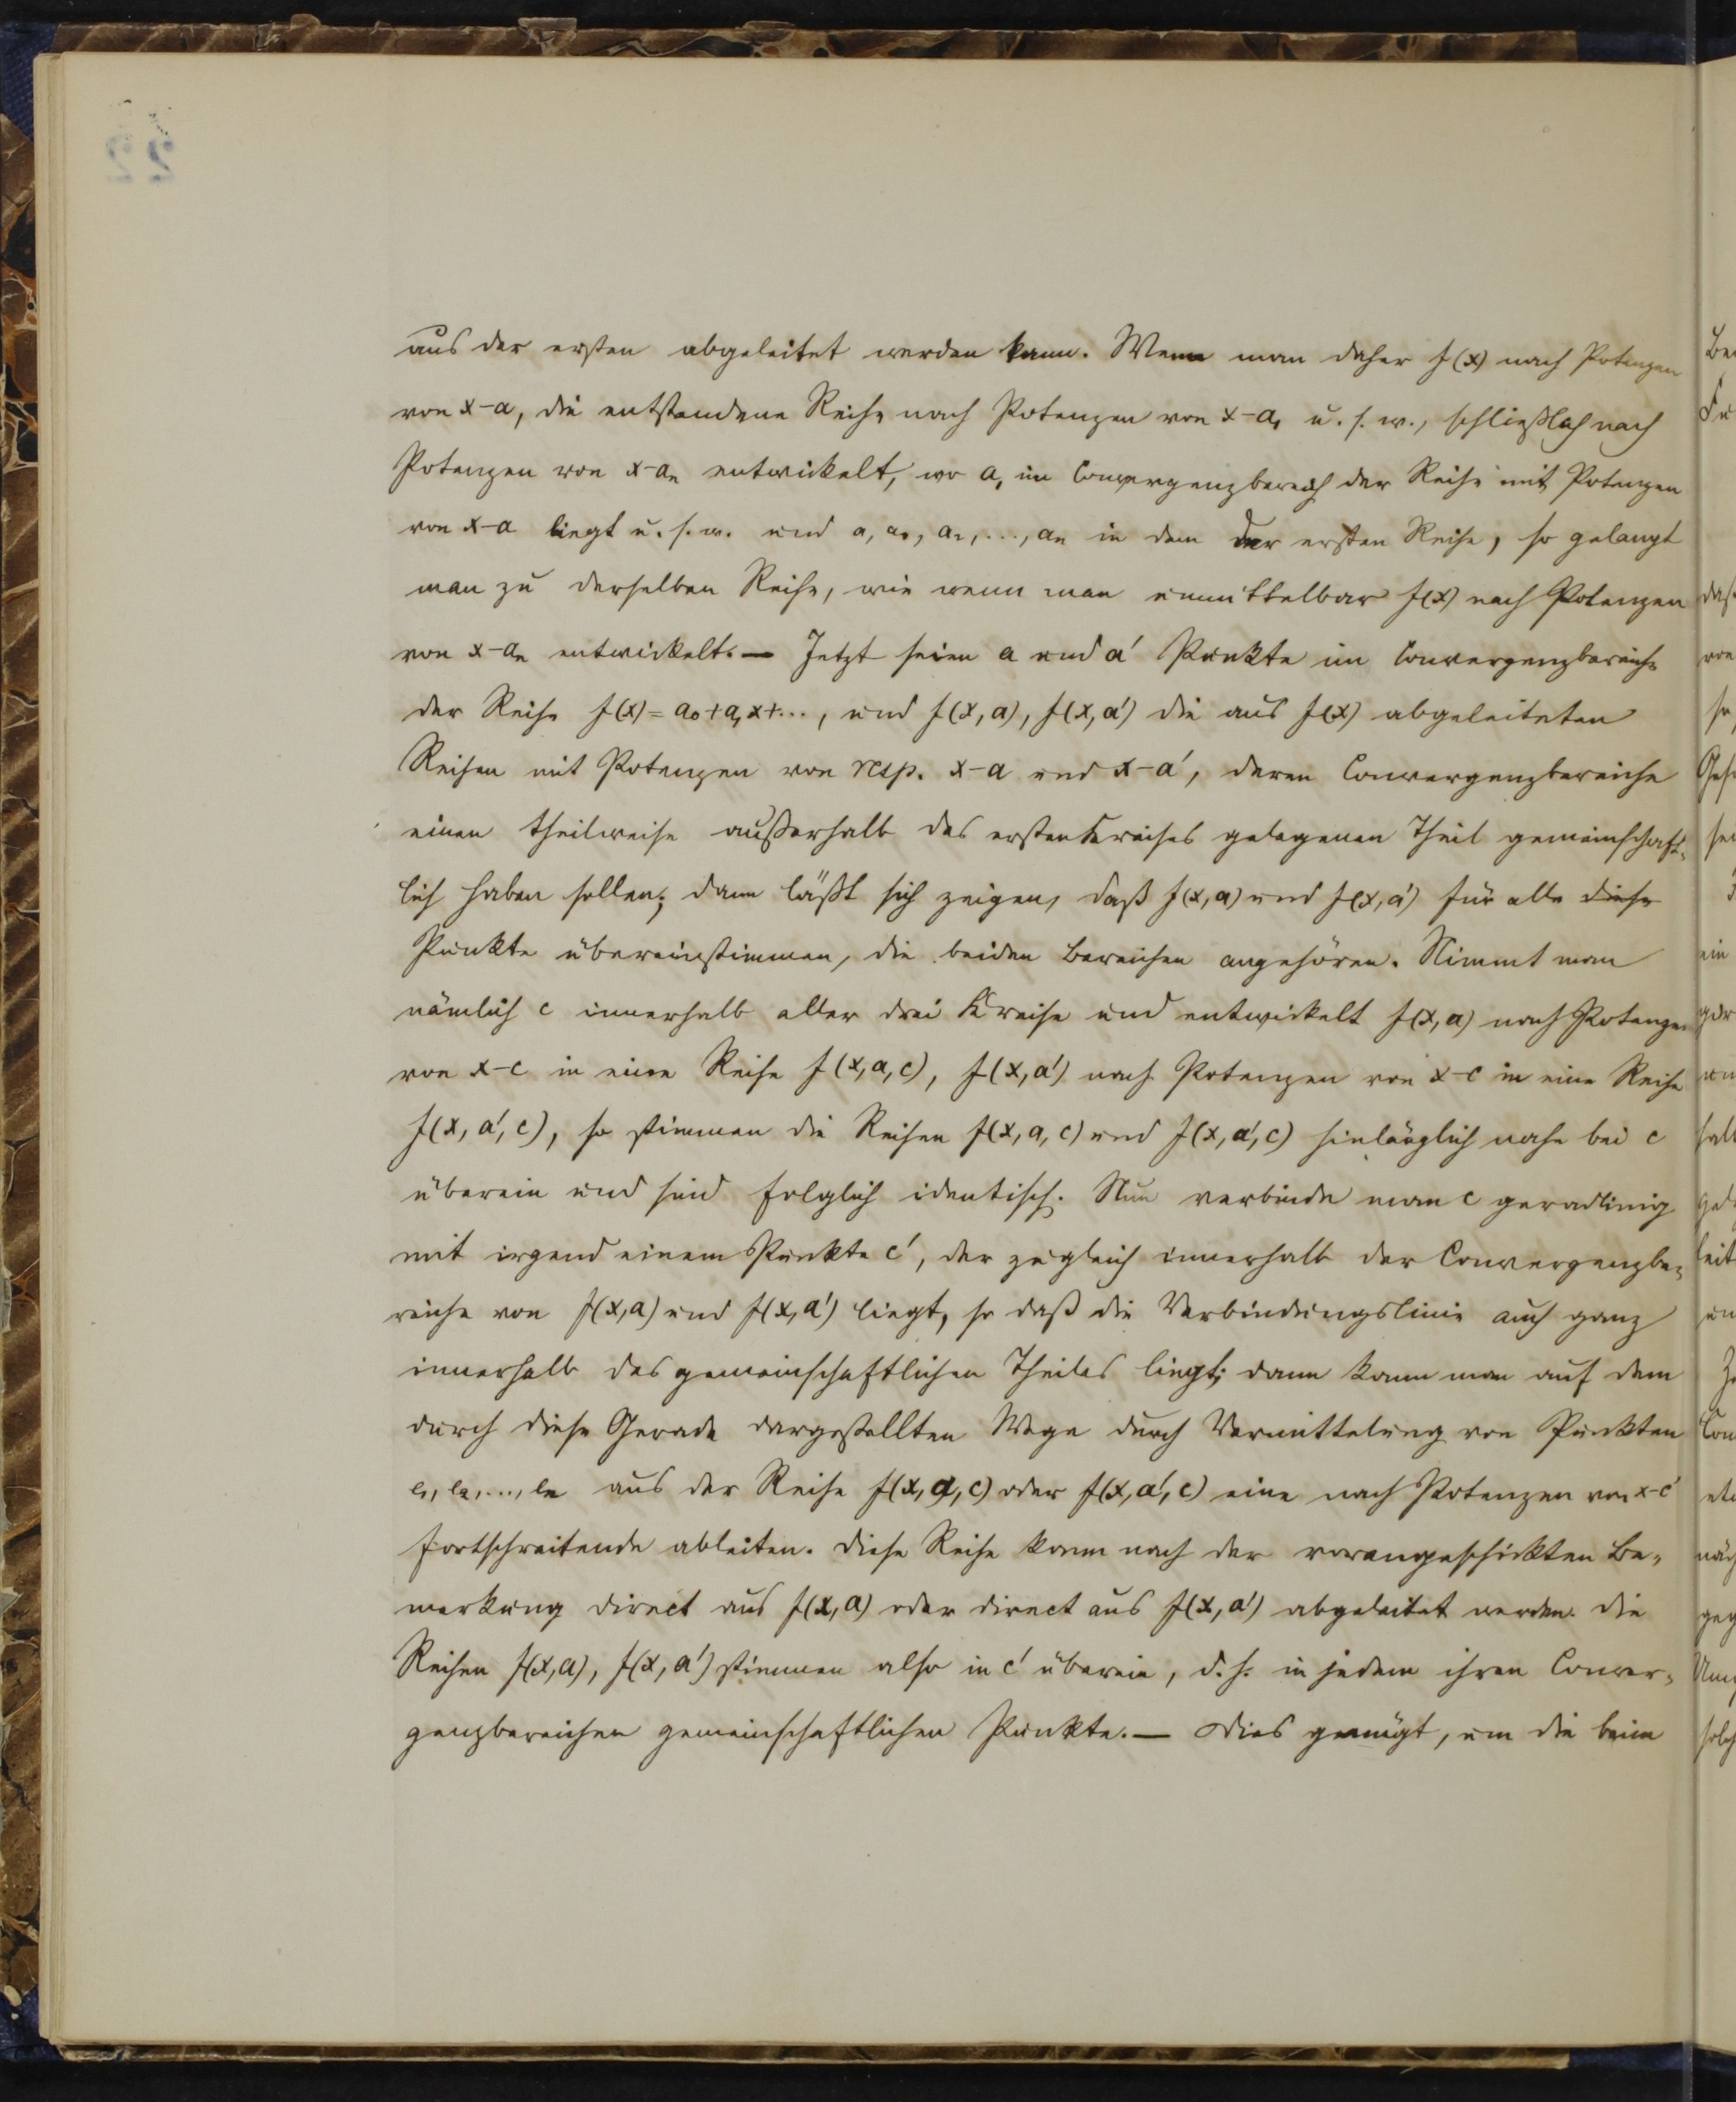 aus der ersten abgeleitet werden kann. Wenn man daher f(x) nach Potenzen
von x-a, die entstandene Reihe nach Potenzen von x-a₁ u. s. w., schließlich nach
Potenzen von x-aₙ entwickelt, wo a₁ im Convergenzbereich der Reihe mit Potenzen
von x-a liegt u. s. w. und a, a₁, a₂, ..., aₙ in dem der ersten Reihe, so gelangt
man zu derselben Reihe, wie wenn man unmittelbar f(x) nach Potenzen
von x-aₙ entwickelt. — Jetzt seien a und a' Punkte im Convergenzbereiche
der Reihe f(x) = a₀+a₁x+..., und f(x,a), f(x,a') die aus f(x) abgeleiteten
Reihen mit Potenzen von resp. x-a und x-a', deren Convergenzbereiche
einen theilweise außerhalb des ersten Kreises gelegenen Theil gemeinschaft-
lich haben sollen; dann läßt sich zeigen, daß f(x,a) und f(x,a') für alle diese
Punkte übereinstimmen, die beiden Bereichen angehören. Nimmt man
nämlich c innerhalb aller drei Kreise und entwickelt f(x,a) nach Potenzen
von x-c in eine Reihe f(x,a,c), f(x,a') nach Potenzen von x-c in eine Reihe
f(x,a',c), so stimmen die Reihen f(x,a,c) und f(x,a',c) hinlänglich nahe bei c
überein und sind folglich identisch. Nun verbinde man c geradlinig
mit irgend einem Punkte c', der zugleich innerhalb der Convergenzbe-
reiche von f(x,a) und f(x,a') liegt, so daß die Verbindungslinie auch ganz
innerhalb des gemeinschaftlichen Theiles liegt; dann kann man auf dem
durch diese Gerade dargestellten Wege durch Vermittelung von Punkten
c₁, c₂, ..., cₙ aus der Reihe f(x,a,c) oder f(x,a',c) eine nach Potenzen von x-c'
fortschreitende ableiten. Diese Reihe kann nach der vorangeschickten Be-
merkung direct aus f(x,a) oder direct aus f(x,a') abgeleitet werden. Die
Reihen f(x,a), f(x,a') stimmen also in c' überein, d. h. in jedem ihren Conver-
genzbereichen gemeinschaftlichen Punkte. — Dies genügt, um die beim